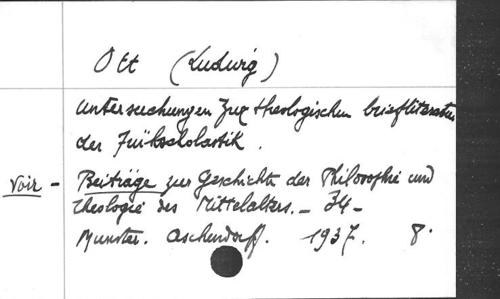 Ott (Ludwig)
Untersuchungen zur theologischen briefliteratur
der Frühscholastik.
Voir - Beiträge zur Geschichte der Philosophie und
theologie des Mittelalters. - 34 -
Munster. Aschendorff. 1937. 8°